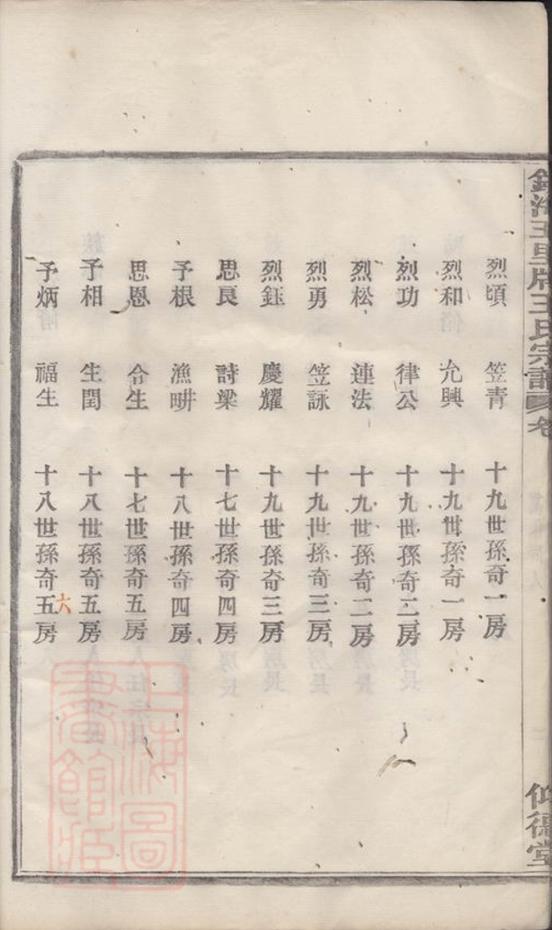 王氏宗譜 卷
仰德堂
烈頃 笠青 十九世孫奇一房
烈和 允興 十九世孫奇一房
烈功 律公 十九世孫奇二房
烈松 蓮法 十九世孫奇二房
烈勇 笠詠 十九世孫奇三房
烈鈺 慶耀 十九世孫奇三房
思良 詩梁 十七世孫奇四房
予根 漁畊 十八世孫奇四房
思恩 令生 十七世孫奇五房
予相 生閏 十八世孫奇五房
予炳 福生 十八世孫奇五房
六
上海圖書館藏